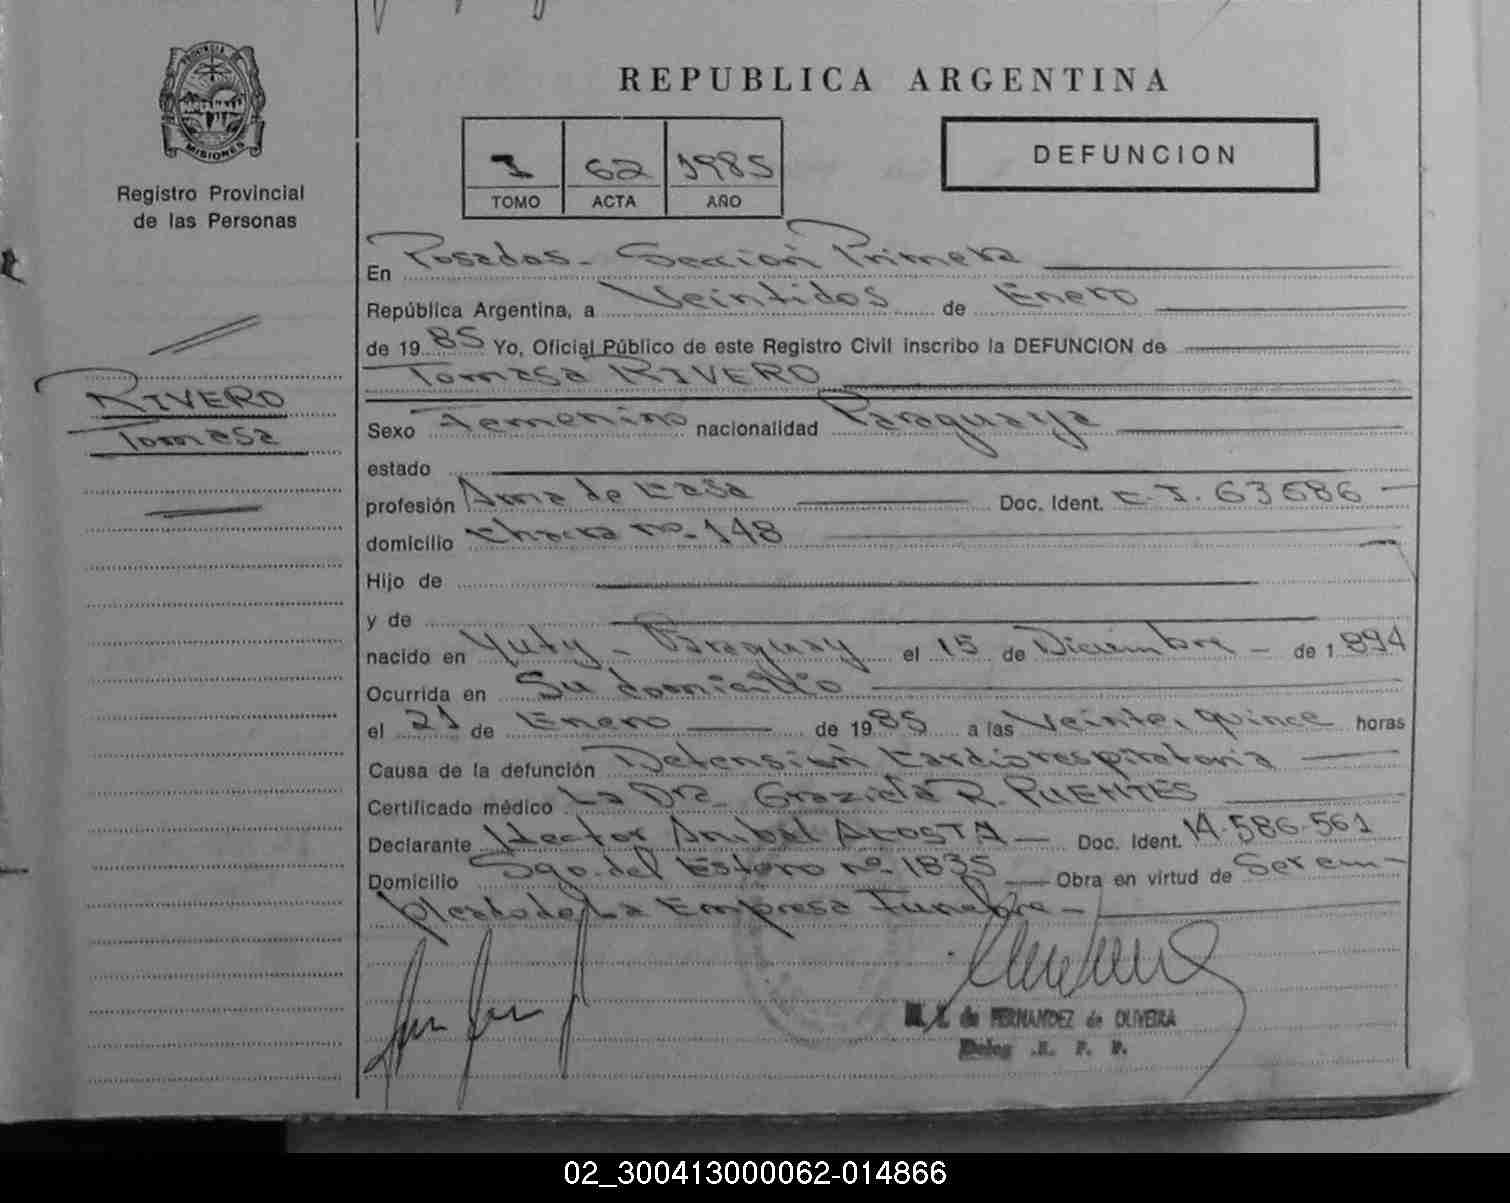 PROVINCIA DE
MISIONES
Registro Provincial
de las Personas
RIVERO
Tomasa
REPUBLICA ARGENTINA
I 62 1985
TOMO ACTA AÑO
DEFUNCION
En Posadas - Sección Primera
República Argentina, a Veintidos de Enero
de 1985 Yo, Oficial Público de este Registro Civil inscribo la DEFUNCION de
Tomasa RIVERO
Sexo Femenino nacionalidad Paraguaya
estado
profesión Ama de Casa Doc. Ident. C.I. 63686
domicilio Chacra nº 148
Hijo de
y de
nacido en Yuty - Paraguay el 15 de Diciembre - de 1894
Ocurrida en Su domicilio
el 21 de Enero de 1985 a las Veinte, quince horas
Causa de la defunción Detensión Cardiorespiratoria
Certificado médico La Dra. Graziela R. PUENTES
Declarante Hector Anibal ACOSTA - Doc. Ident. 14.586.561
Domicilio Sgo. del Estero nº 1835 Obra en virtud de Ser em-
pleado de La Empresa Funebre -
de FERNANDEZ de OLIVEIRA
Deleg .R. P. P.
02_300413000062-014866